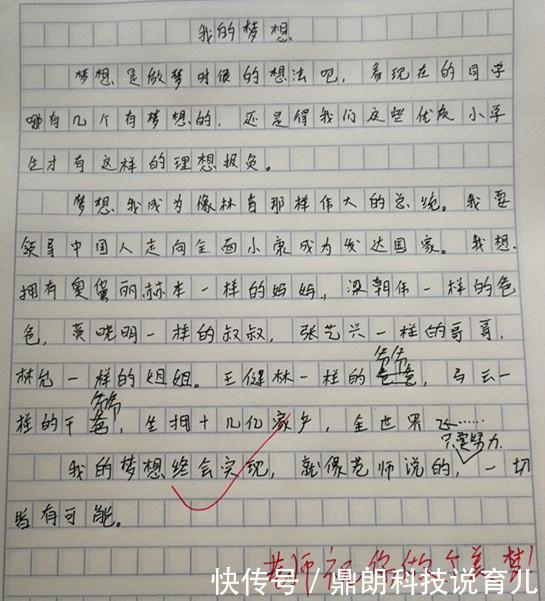 我的梦想
梦想是做梦时候的想法吧，看现在的同学
哪有几个有梦想的，还是得我们这些优质小学
生才有这样的理想报负。
梦想我成为像林肯那样伟大的总统。我要
领导中国人走向全面小康成为发达国家。我想
拥有奥黛丽赫本一样的妈妈，梁朝伟一样的爸
爸，黄晓明一样的叔叔，张艺兴一样的哥哥，
林允一样的姐姐。王健林一样的爷爷，马云一
样的干爷爷，坐拥十几亿家产，全世界飞……
只要努力
我的梦想终会实现，就像老师说的，一切
皆有可能。
老师祝你做个美梦！
快传号／鼎朗科技说育儿